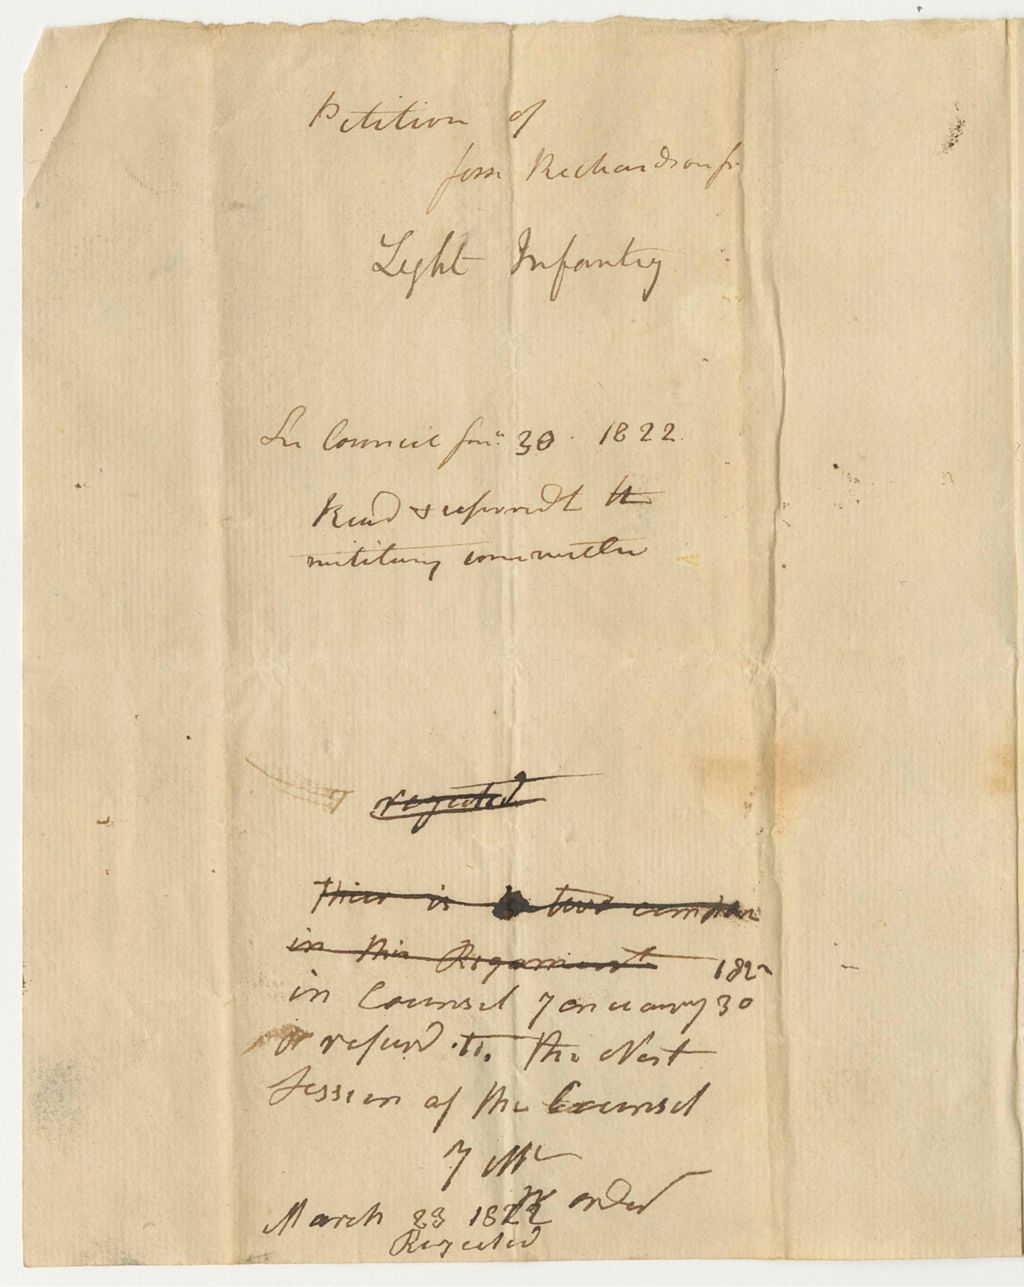 Petition of
Jesse Richardson Jr
Light Infantry
In Council Jany 30. 1822.
Read & referred to the
military committee
rejected
this is two
in this Regement 182
in Counsel January 30
refurd to the Next
Session of the Counsel
order
March 23 1822
Rejected